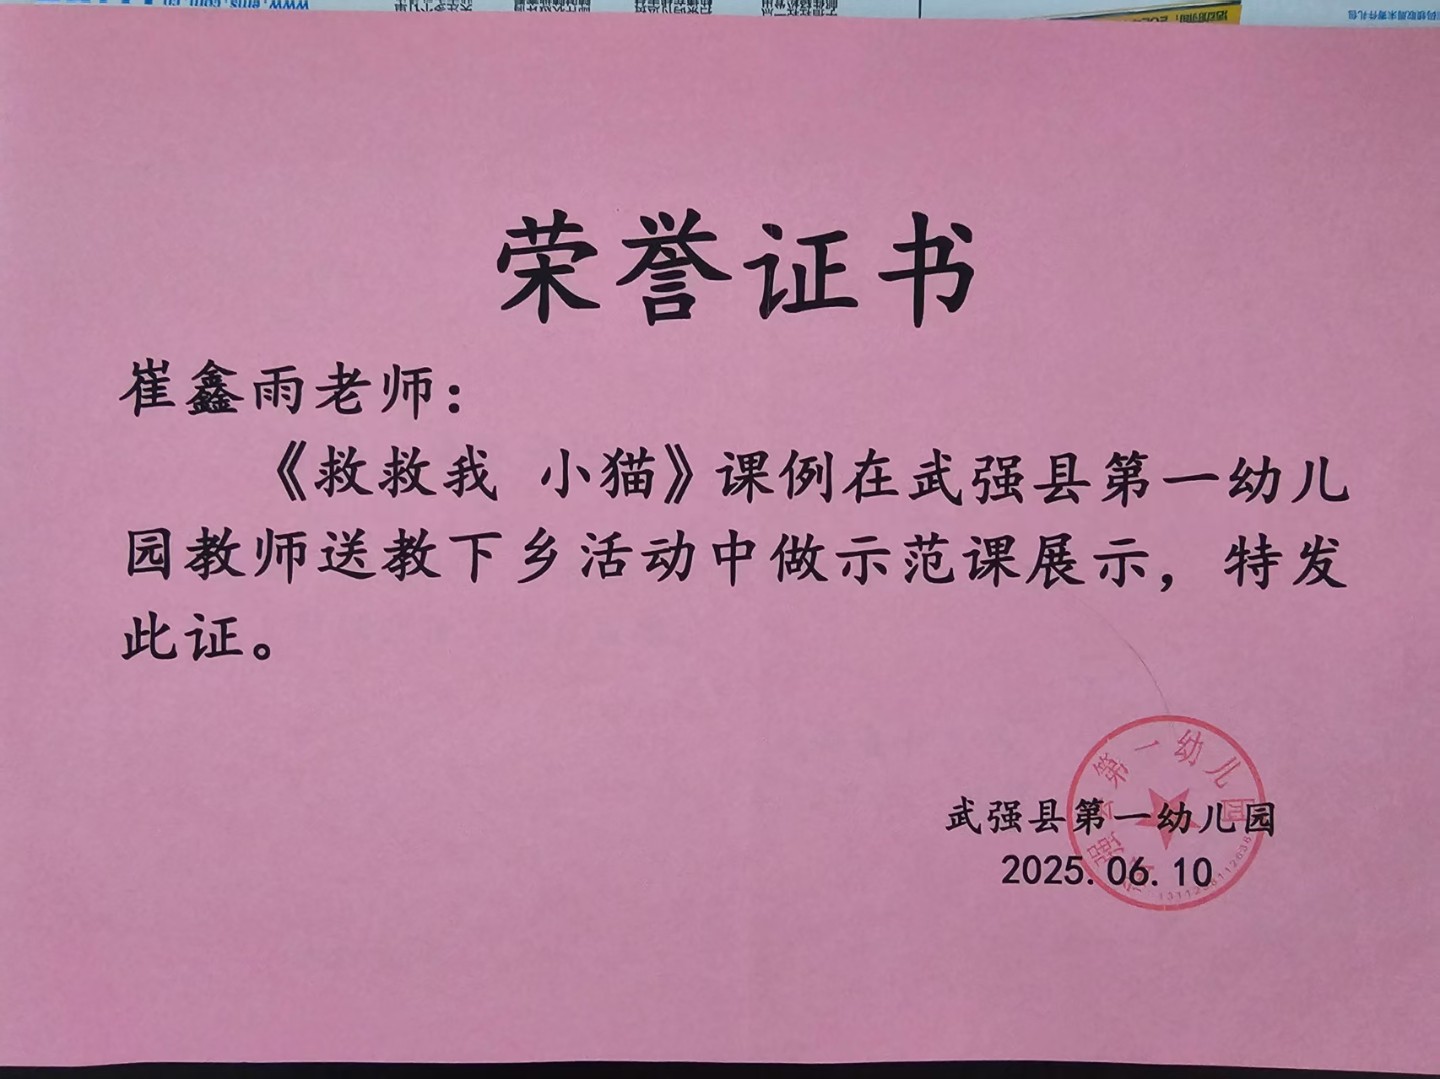 荣誉证书
崔鑫雨老师：
《救救我 小猫》课例在武强县第一幼儿
园教师送教下乡活动中做示范课展示，特发
此证。
武强县第一幼儿园
2025.06.10
强县第一幼儿园